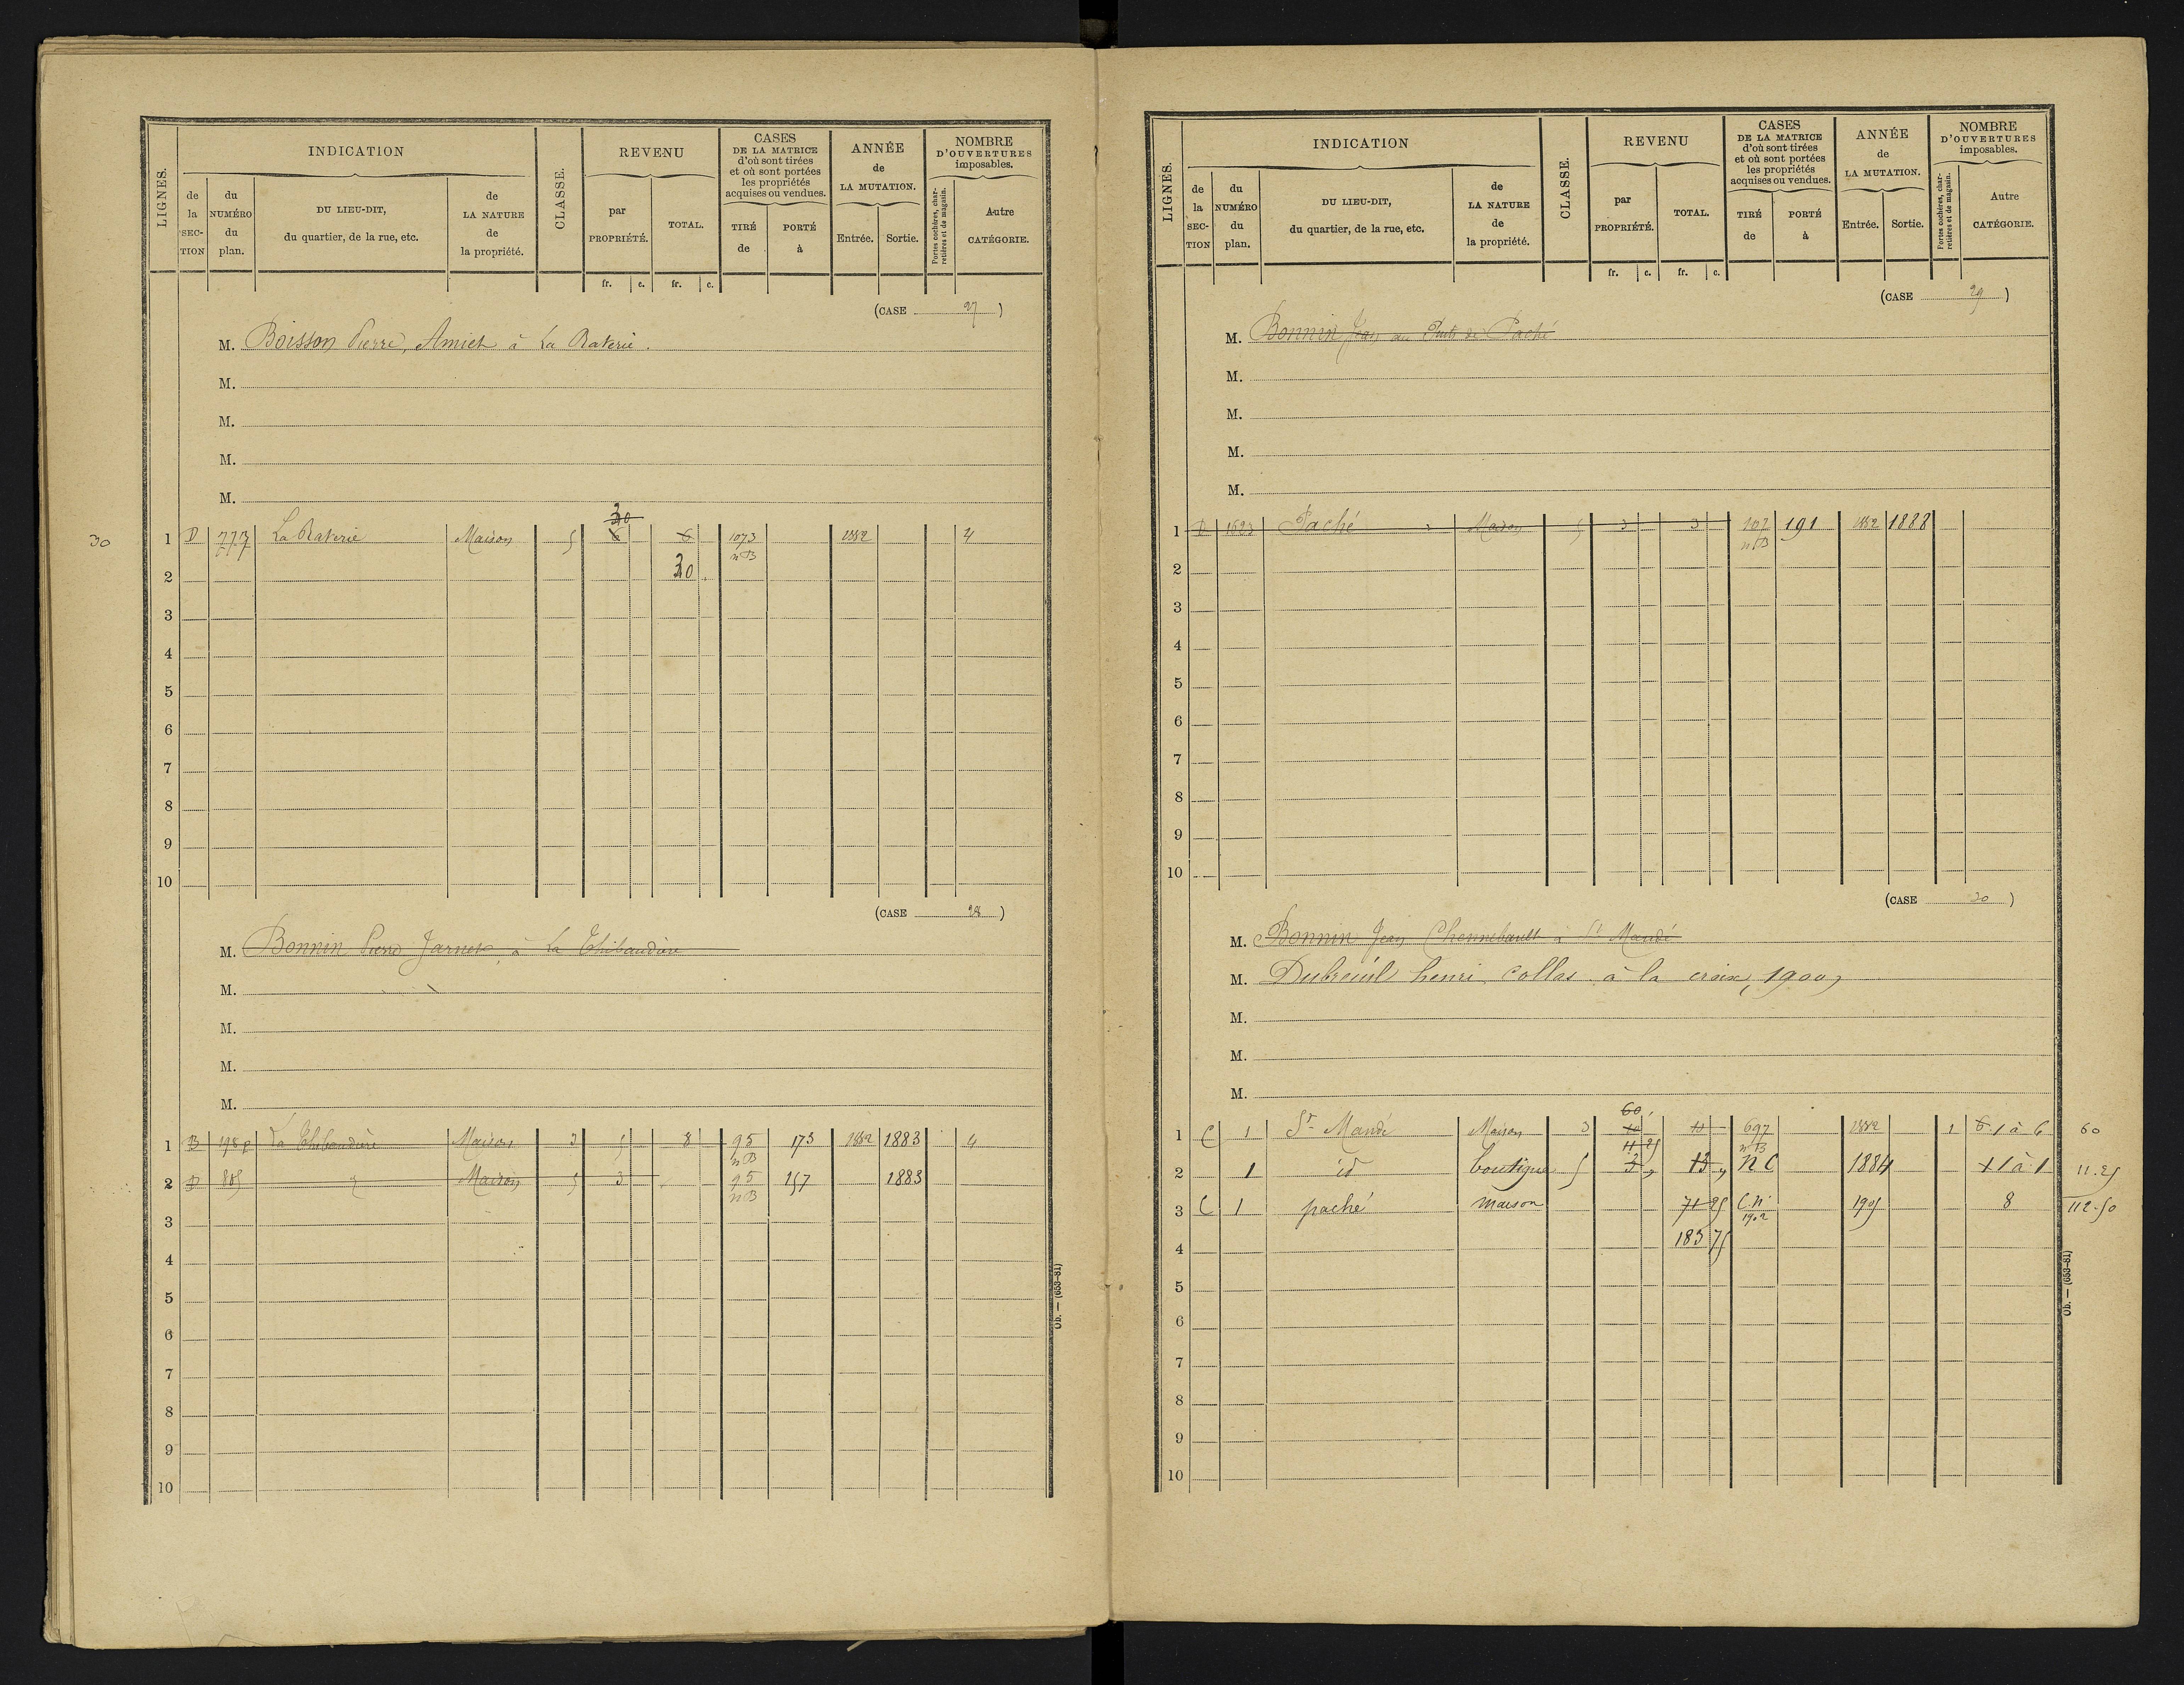 LIGNES.
INDICATION
de la SECTION
du NUMÉRO du plan.
DU LIEU-DIT, du quartier, de la rue, etc.
de LA NATURE de la propriété.
CLASSE.
REVENU
par PROPRIÉTÉ.
TOTAL.
fr. c. fr. c.
CASES DE LA MATRICE d'où sont tirées et où sont portées les propriétés acquises ou vendues.
TIRÉ de
PORTÉ à
ANNÉE de LA MUTATION.
Entrée. Sortie.
NOMBRE D'OUVERTURES imposables.
Portes cochères, charretières et de magasin.
Autre CATÉGORIE.
(CASE 27)
M. Boisson Pierre, Amiet à La Raterie.
M.
M.
M.
M.
30
30
1 D 777 La Raterie Maison 5 6 6 1073 nB 1882 4
2 30
3
4
5
6
7
8
9
10
(CASE 28)
M. Bonnin Pierre Jarnet, à La Thibaudière
M.
M.
M.
M.
1 B 198p La Thibaudière Maison 3 5 8 95 nB 173 1882 1883 4
2 D 805 Maison 5 3 95 nB 157 1883
3
4
5
6
7
8
9
10
Ob. — (653-81)
LIGNES.
INDICATION
de la SECTION
du NUMÉRO du plan.
DU LIEU-DIT, du quartier, de la rue, etc.
de LA NATURE de la propriété.
CLASSE.
REVENU
par PROPRIÉTÉ.
TOTAL.
fr. c. fr. c.
CASES DE LA MATRICE d'où sont tirées et où sont portées les propriétés acquises ou vendues.
TIRÉ de
PORTÉ à
ANNÉE de LA MUTATION.
Entrée. Sortie.
NOMBRE D'OUVERTURES imposables.
Portes cochères, charretières et de magasin.
Autre CATÉGORIE.
(CASE 29)
M. Bonnin Jean au Puits de Paché
M.
M.
M.
M.
1 D 1623 Paché Maison 5 3 3 102 nB 191 1882 1888
2
3
4
5
6
7
8
9
10
(CASE 30)
M. Bonnin Jean Chennebault à St Mandé
M. Dubreuil henri Collas à la croix, 1900
M.
M.
M.
60
1 C 1 St Mandé Maison 3 10 10 697 nB 1882 1 6 1 à 6 60
11 25
2 1 id boutique 5 3 " 13 " n C 1884 1 1 à 1 11.25
3 C 1 paché maison 71 25 C.n. 1902 1905 8 112.50
4 183 75
5
6
7
8
9
10
Ob. — (653-81)